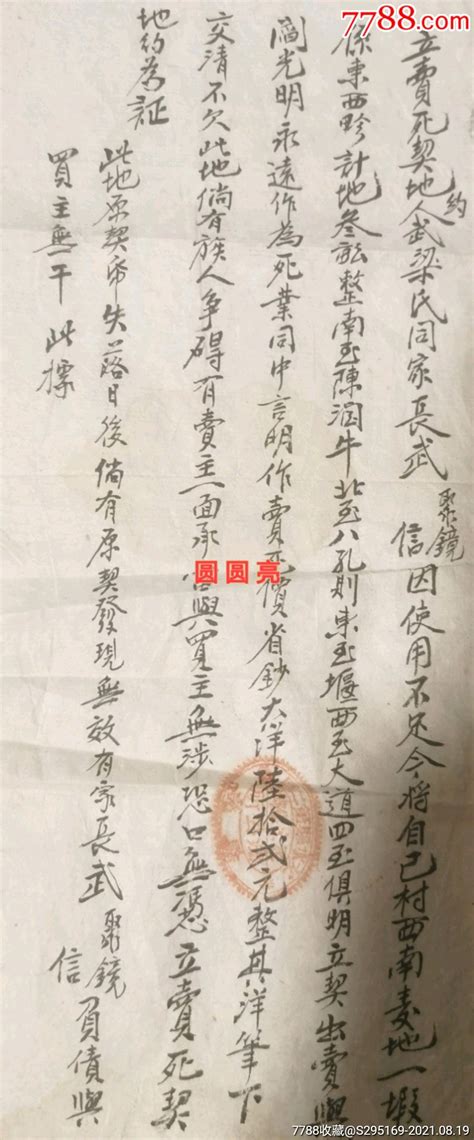 7788.com
立賣死契地約人武梁氏同家長武聚鏡信因使用不足今將自己村西南麦地一塅
係東西畛計地叁畝整南至陳润牛北至八孔則東至堰西至大道四至俱明立契出賣與
阎光明永遠作為死業同中言明作賣死價省鈔大洋陸拾弍元整其洋筆下
交清不欠此地倘有族人争碍有賣主一面承當與買主無涉恐口無憑立賣死契
地約为証
此地原契昂失落日後倘有原契發現無效有家長武聚鏡信負債與
買主無干此據
圆圆亮
7788收藏@S295169-2021.08.19